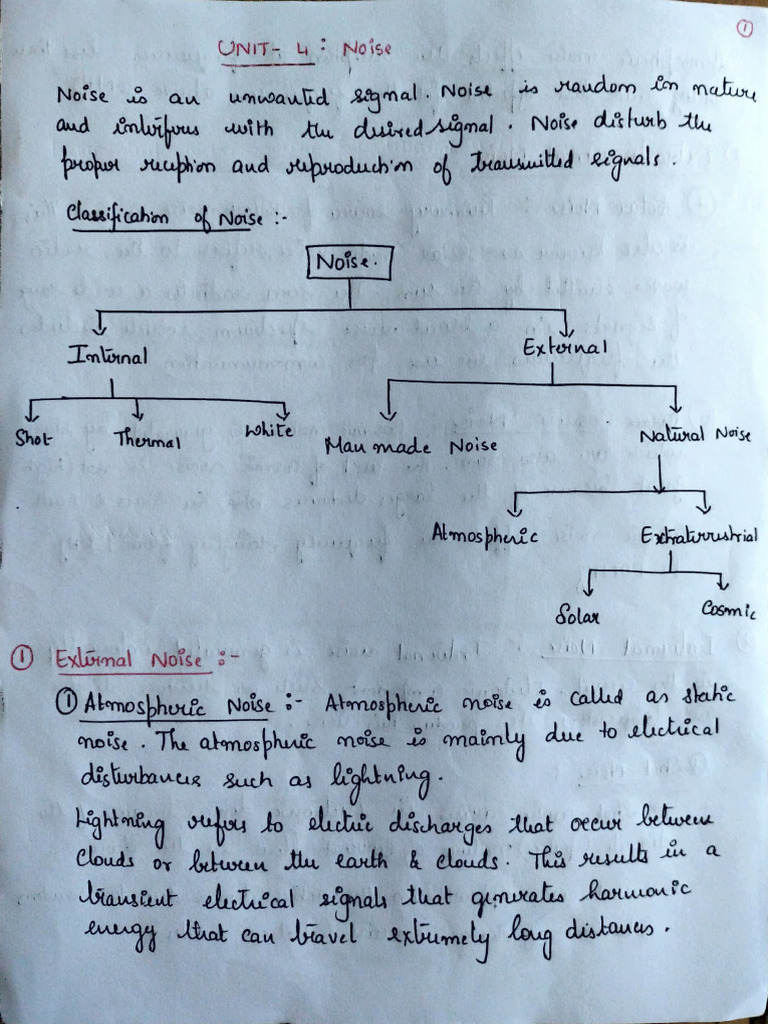 1
UNIT- 4 : Noise
Noise is an unwanted signal. Noise is random in nature
and interferes with the desired signal. Noise disturb the
proper reception and reproduction of transmitted signals.
Classification of Noise :-
Noise.
Internal External
Shot Thermal White Man made Noise Natural Noise
Atmospheric Extraterrestrial
Solar Cosmic
1 External Noise :-
1 Atmospheric Noise :- Atmospheric noise is called as static
noise. The atmospheric noise is mainly due to electrical
disturbances such as lightning.
Lightning refers to electric discharges that occur between
clouds or between the earth & clouds. This results in a
transient electrical signals that generates harmonic
energy that can travel extremely long distances.